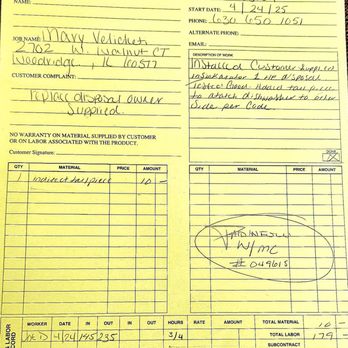 NAME:
START DATE: 4/24/25
PHONE: 630 650 1051
ALTERNATE PHONE:
EMAIL:
JOB NAME: Mary Velichen
2702 W. Walnut CT
Woodridge, IL 60517
CUSTOMER COMPLAINT:
replace disposal owner
Supplied
NO WARRANTY ON MATERIAL SUPPLIED BY CUSTOMER
OR ON LABOR ASSOCIATED WITH THE PRODUCT.
Customer Signature:
DESCRIPTION OF WORK
Installed Customer Supplied
1 HP disposal
Tested Good. Added tail piece
to attach dishwasher to other
Side per Code.
DONE
QTY MATERIAL PRICE AMOUNT
1 indirect tailpiece 10 -
QTY MATERIAL PRICE AMOUNT
PAID IN FULL
W/MC
# 04961S
LABOR RECORD
WORKER DATE IN OUT IN OUT HOURS RATE AMOUNT
Joe D 4/24 145 235 3/4
TOTAL MATERIAL 10 -
TOTAL LABOR 179 -
SUBCONTRACT